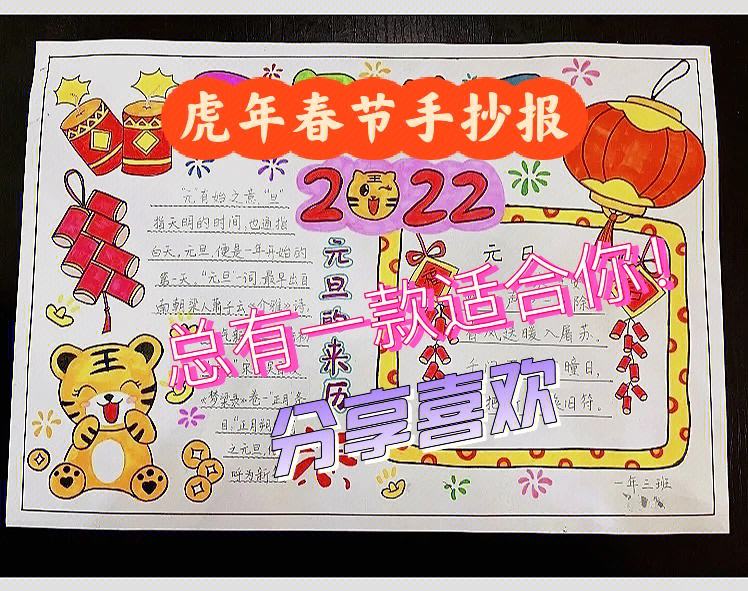 虎年春节手抄报
2022
"元"有始之意,"旦"
指天明的时间,也通指
白天,元旦,便是一年开始的
第一天。"元旦"一词,最早出自
南朝梁人萧子云《介雅》诗
《梦梁录》卷一"正月条
目:"正月朔
之元旦,
呼为新
元旦的来历
元日
声
除
春风送暖入屠苏。
千
曈日,
把
旧符。
总有一款适合你!
分享喜欢
一年三班